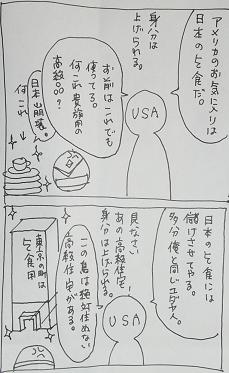 アメリカのお気に入りは
日本の乞食だ。
身分は
上げられる。
USA
お前はこれでも
使ってる。
何これ貴族用の
高級品？
日本山崩落。
何これ
日本の乞食には
儲けさせてやる。
多分俺と同じユダヤ人。
見なさい
あの高級住宅を
身分は上げられる。
USA
この島は絶対住めない
高級住宅がある。
東京の町は
乞食用